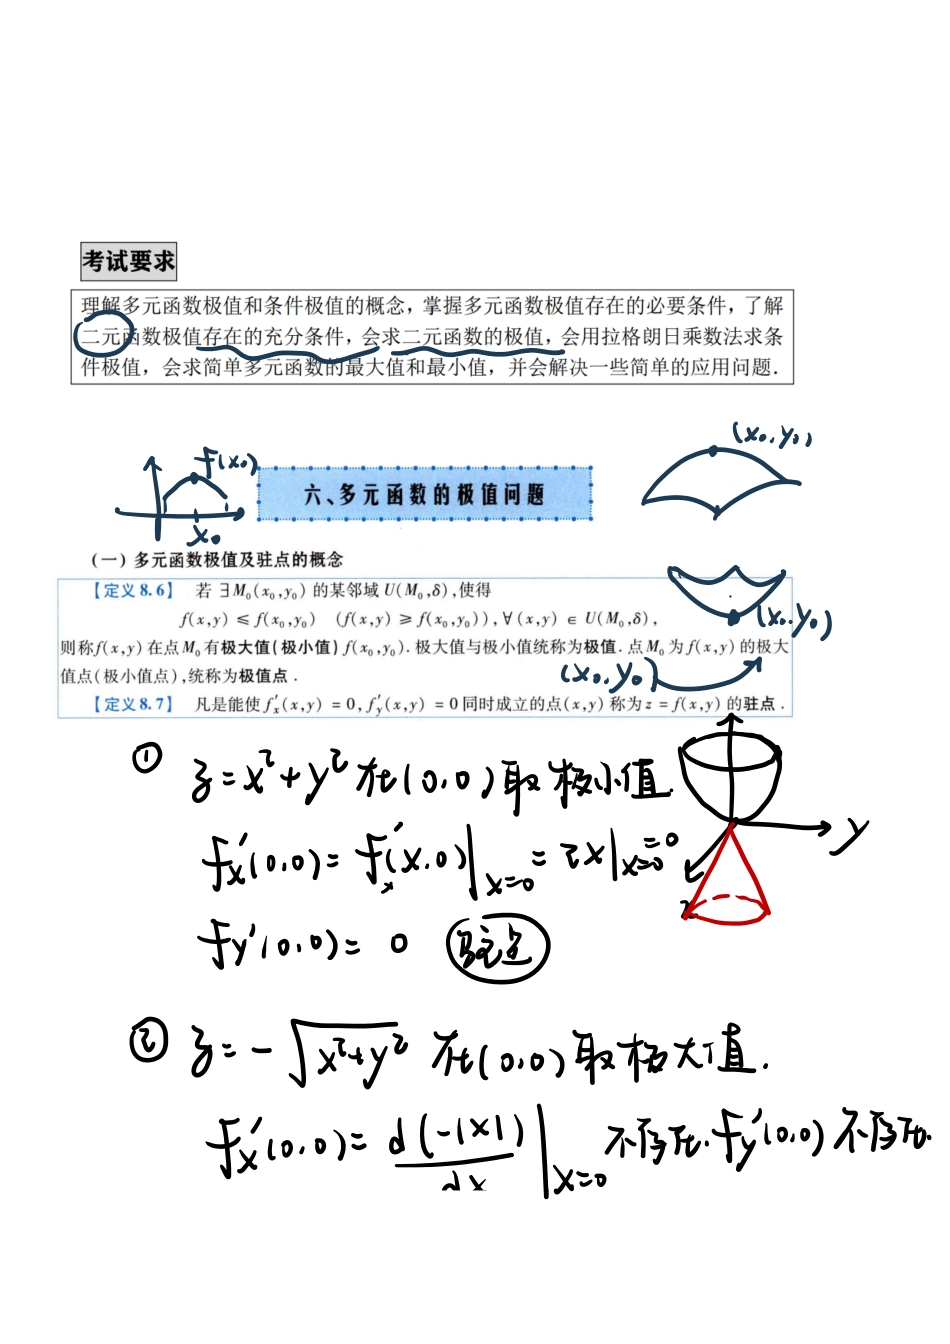 考试要求
理解多元函数极值和条件极值的概念，掌握多元函数极值存在的必要条件，了解
二元函数极值存在的充分条件，会求二元函数的极值，会用拉格朗日乘数法求条
件极值，会求简单多元函数的最大值和最小值，并会解决一些简单的应用问题．
(x₀,y₀)
f(x₀)
六、多元函数的极值问题
x₀
(一) 多元函数极值及驻点的概念
【定义8.6】 若 ∃M₀(x₀,y₀) 的某邻域 U(M₀,δ),使得
f(x,y) ≤ f(x₀,y₀) (f(x,y) ≥ f(x₀,y₀)),∀(x,y) ∈ U(M₀,δ),
(x₀,y₀)
则称f(x,y) 在点M₀有极大值(极小值) f(x₀,y₀). 极大值与极小值统称为极值. 点M₀为f(x,y)的极大
值点(极小值点),统称为极值点.
(x₀,y₀)
【定义8.7】 凡是能使f′ₓ(x,y) = 0,f′ᵧ(x,y) = 0同时成立的点(x,y)称为z = f(x,y)的驻点.
① z=x²+y² 在(0,0)取极小值
y
fₓ′(0,0)= fₓ′(x,0)|ₓ₌₀ = 2x|ₓ₌₀ =0
x
fy′(0,0)= 0 驻点
② z=-√x²+y² 在(0,0)取极大值.
fₓ′(0,0)= d(-|x|)/dx |ₓ₌₀ 不存在. fy′(0,0) 不存在.